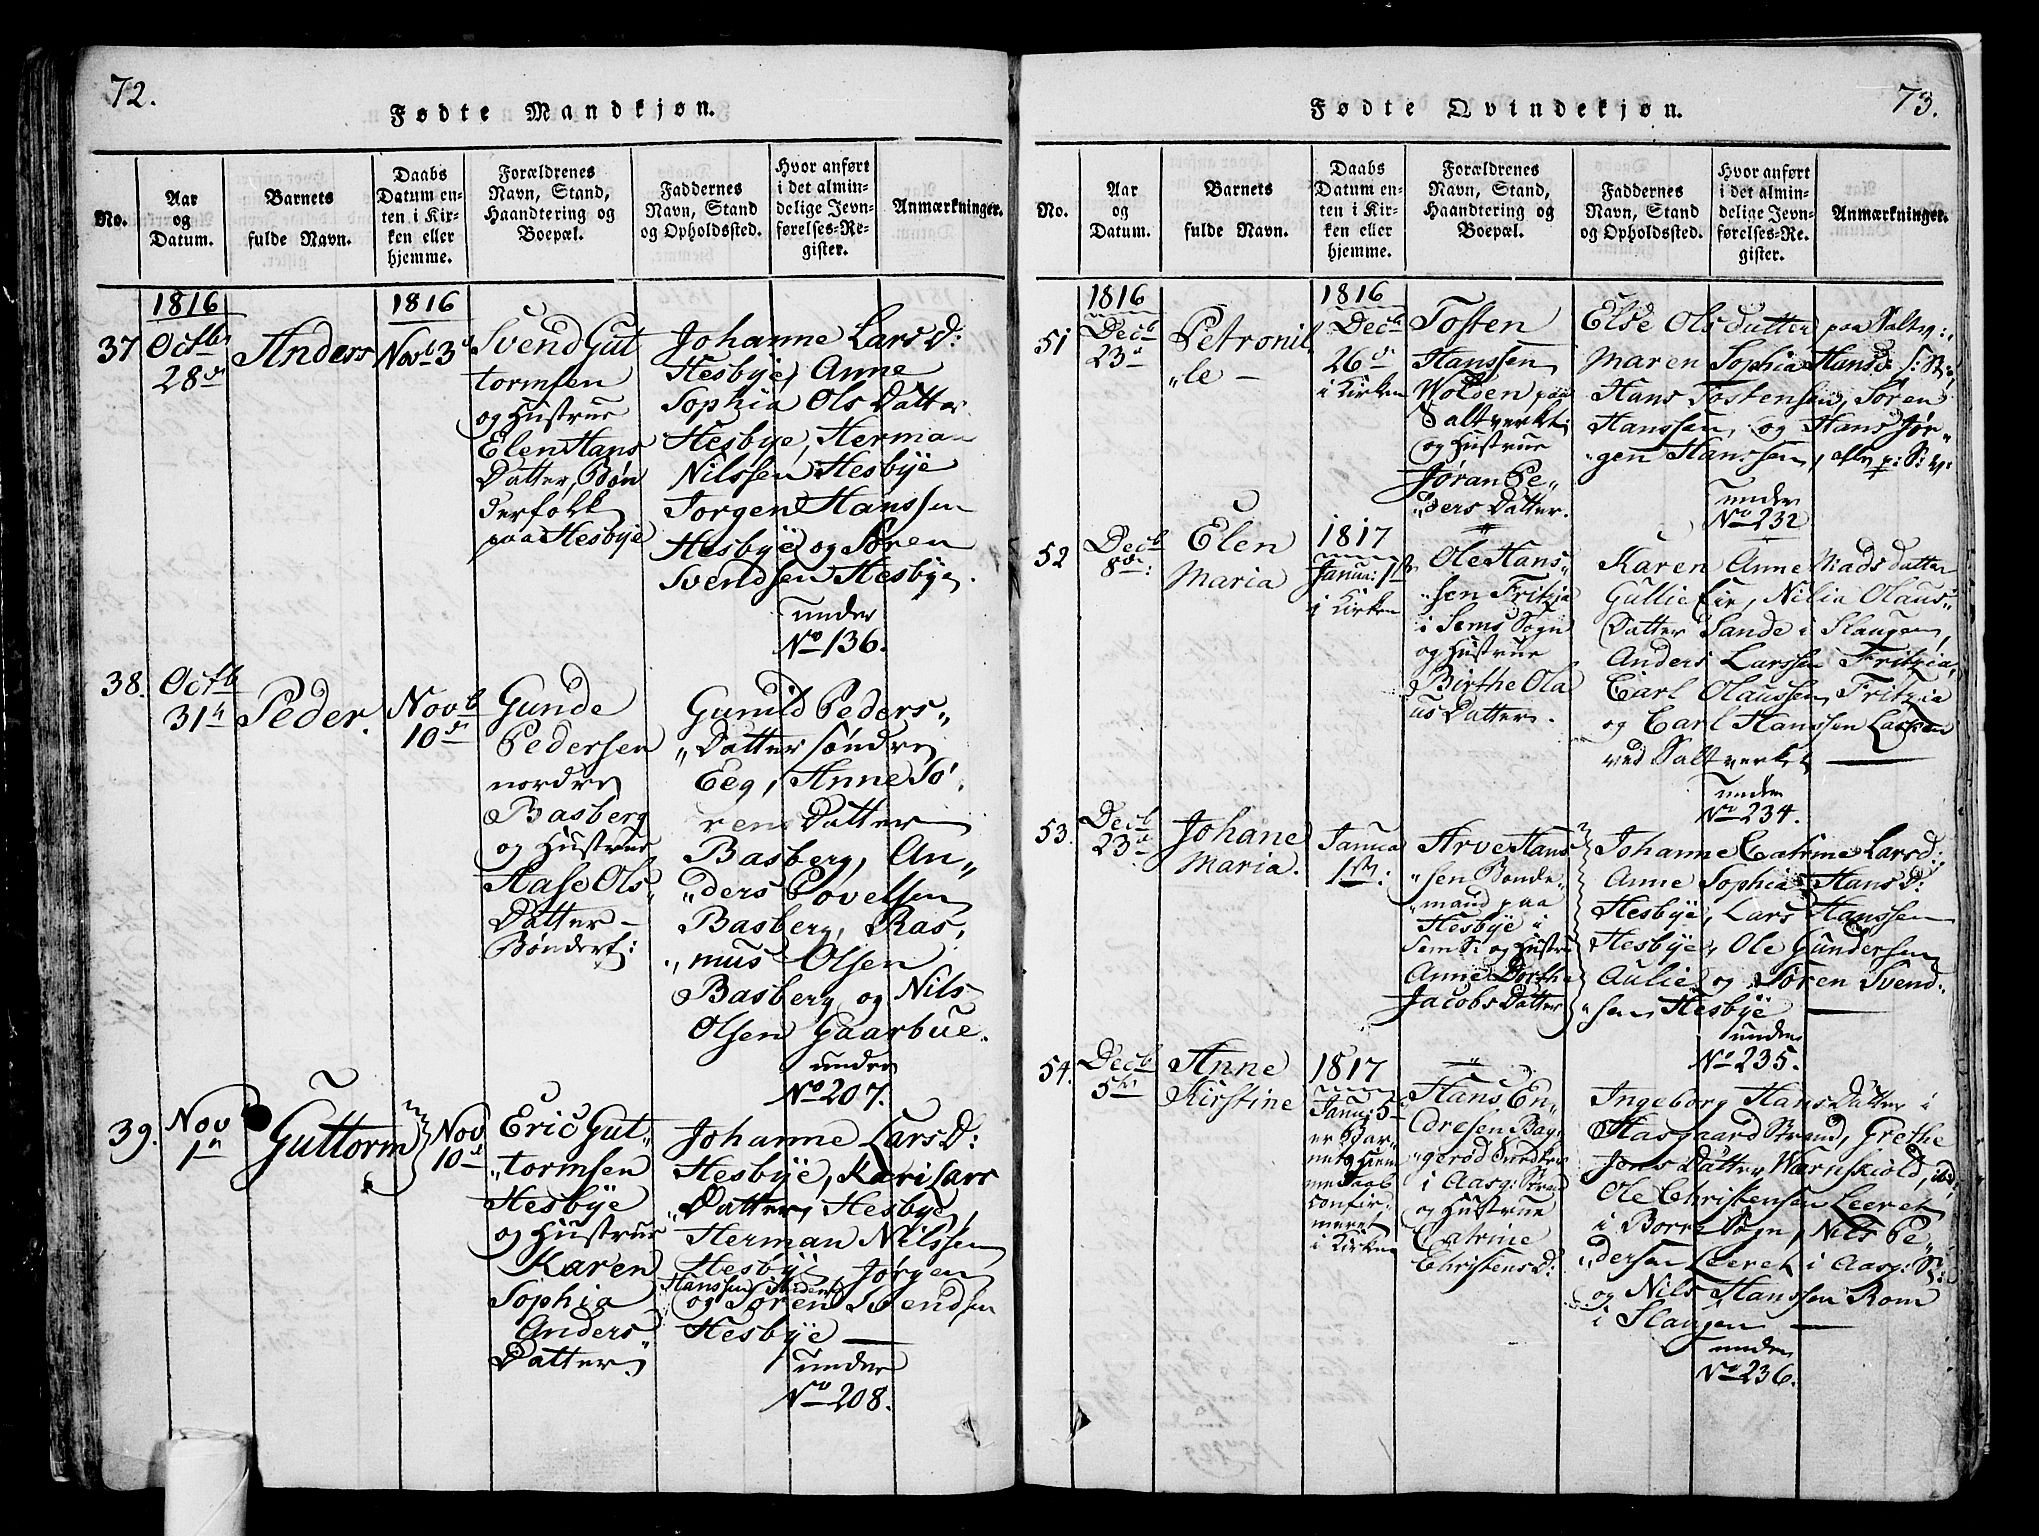 72.
Fødte Mandkjøn.
No.
Aar
og
Datum.
Barnets
fulde Navn.
Daabs
Datum en-
ten i Kir-
ken eller
hjemme.
Forældrenes
Navn, Stand,
Haandtering og
Boepæl.
Faddernes
Navn, Stand
og Opholdssted.
Hvor anført
i det almin-
delige Jevn-
førelses-Re-
gister.
Anmærkninger.
37
1816
Octb
28
Anders
1816
Novb 3
Svend Gut
tormsen
og Hustrue
Elen Hans
Datter, Bøn
derfolk
paa Hesbÿe
Johanne Lars D:
Hesbÿe, Anne
Sophia Ols Datter
Hesbÿe, Herman
Nilssen Hesbÿe
Jorgen Hanssen
Hesbÿe og Søren
Svendsen Hesbÿe.
under
No 136.
38.
Octb
31
Peder.
Novb
10
Gunde
Pedersen
nordre
Basberg
og Hustrue
Aase Ols„
Datter –
Bønderf:
Gunild Peders„
„Datter søndre
Eeg, Anne Sø„
rens Datter
Basberg, An„
„ders Povelsen
Basberg, Ras„
„mus Olsen
Basberg og Nils
Olsen Gaarbue.
under
No 207.
39.
Nov
1
Guttorm
Nov
10
Eric Gut„
„tormsen
Hesbÿe
og Hustrue
Karen
Sophia
Anders
Datter
Johanne Lars D:
Hesbÿe, Kari Lars
„Datter, Hesbÿe,
Herman Nilssen
Hesbÿe Jørgen
Hanssen
og Søren Svendsen
Hesbÿe —
under
No 208.
73.
Fødte Qvindekjøn.
No.
Aar
og
Datum.
Barnets
fulde Navn.
Daabs
Datum en-
ten i Kir-
ken eller
hjemme.
Forældrenes
Navn, Stand,
Haandtering og
Boepæl.
Faddernes
Navn, Stand
og Opholdssted.
Hvor anført
i det almin-
delige Jevn-
førelses-Re-
gister.
Anmærkninger.
51
1816
Decb
23
Petronil
„le –
1816
Decb
26
i Kirken
Tosten
Hanssen
Wolden paa
Saltverket
og Hustrue
Jøran Pe„
„ders Datter.
Else Olsdatter paa Saltv:
Maren Sophia Hansd:
Hans Tostensen, Søren
Hanssen, og Hans Jør„
„gen Hanssen,
under
No 232
52
Decb
8
Elen
Maria
1817
Janu: 1
i Kirken
Ole Hans„
„sen Fritzja
i Sems Sogn
og Hustrue
Birthe Ola
us Datter.
Karen Anne Madsdatter
Gullie Eie, Nilia Olaus„
Datter Sande i Slaugen,
Anders Larssen Fritzia,
Carl Olaussen Fritzia
og Carl Hanssen
ved Saltverket —
under
No 234.
53.
Decb
23
Johane
Maria.
Janua
1
Arve Hans
„sen Bonde„
„mand paa
Hesbÿe i
Sem S: og Hustru
Anne Dorthe
Jacobs Datter
Johanne Catrine Larsd:,
Anne Sophia Hans D:
Hesbÿe, Lars Hanssen
Hesbÿe, Ole Gundersen
Aulie og Søren Svend„
„sen Hesbÿe —
under
No 235.
54.
Decb
5
Anne
Kirstine
1817
Janu: 5
er Bar„
nets Hiem„
medaab
confir„
meret
i Kirken
Hans En„
dresen Bag„
„gerød
i Aasg: Strand
og Hustrue
Catrine
Christens D:
Ingeborg Hans Datter i
Aasgaard Strand, Grethe
Jens Datter Wærnskiold, ibd,
Ole Christensen Leeret
i Borre Sogn, Nils Pe„
„dersen Leeret i Aasg: St:
og Nils Hanssen Rom
i Slaugen —
under
No 236.